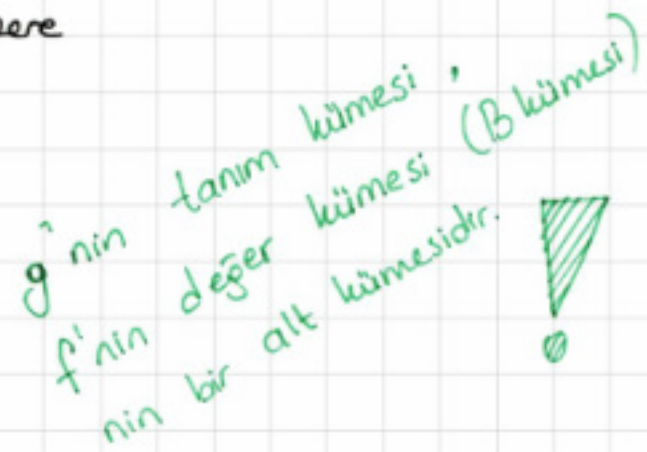 g'nin tanım kümesi,
f'nin değer kümesi (B kümesi)
nin bir alt kümesidir.